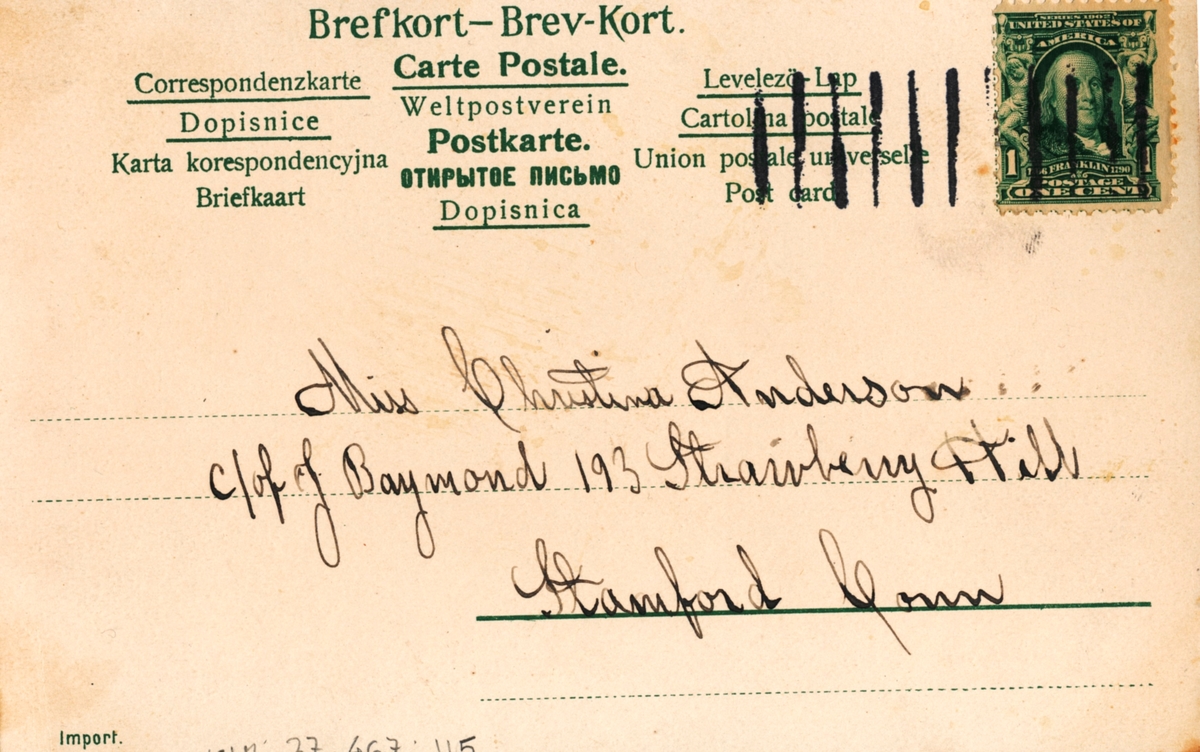 Brefkort–Brev-Kort.
Correspondenzkarte
Dopisnice
Karta korespondencyjna
Briefkaart
Carte Postale.
Weltpostverein
Postkarte.
ОТКРЫТОЕ ПИСЬМО
Dopisnica
Levelező-Lap
Cartolina postale
Union postale universelle
Post card
SERIES 1902
UNITED STATES OF
AMERICA
1 FRANKLIN 1790 1
POSTAGE
ONE CENT
Miss Christina Anderson
c/of J Baymond 193 Strawberry Hill
Stamford Conn
Import.
27.467.115